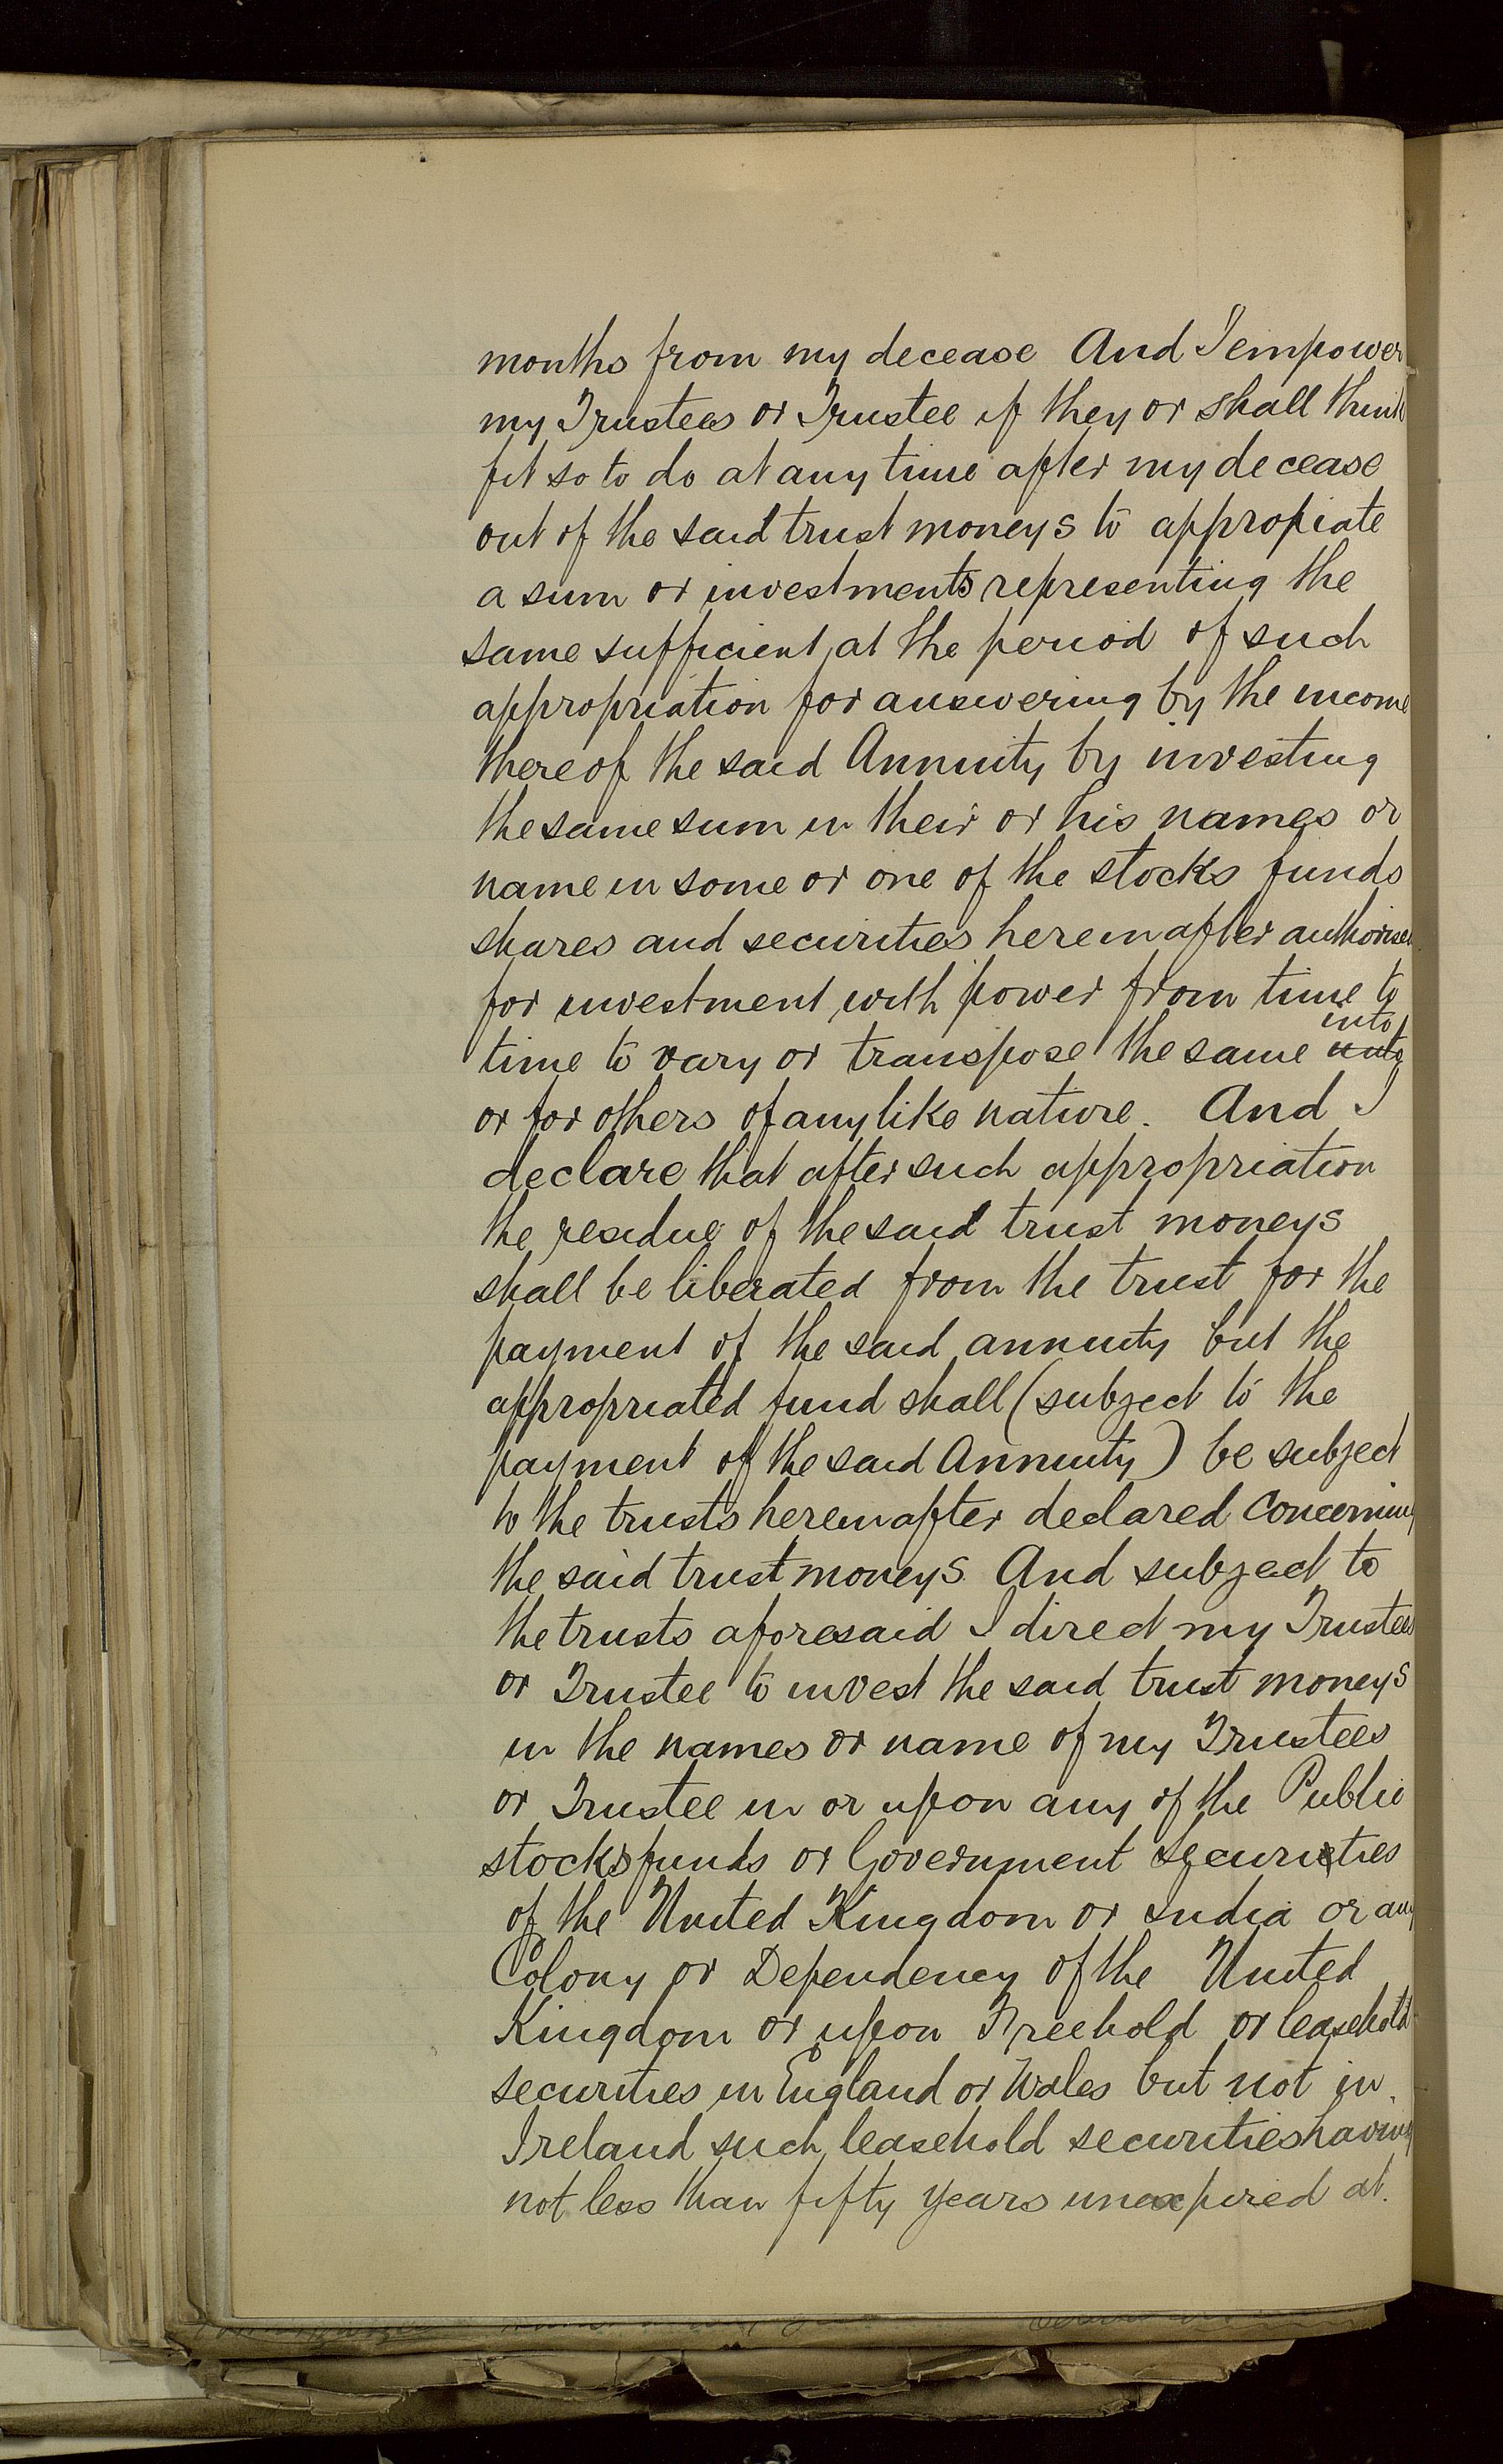 months from my decease And I empower
my Trustees or Trustee if they or shall think
fit so to do at any time after my decease
out of the said trust moneys to appropiate
a sum or investments representing the
same sufficient at the period of such
appropriation for answering by the income
thereof the said Annuity by investing
the same sum in their or his names or
name in some or one of the stocks funds
shares and securities hereinafter authorised
for investment with power from time to
into
time to vary or transpose the same unto
or for others of any like nature. And I
declare that after such appropriation
the residue of the said trust moneys
shall be liberated from the trust for the
payment of the said annuity but the
appropriated fund shall (subject to the
payment of the said Annuity) be subject
to the trusts hereinafter declared concerning
the said trust moneys And subject to
the trusts aforesaid I direct my Trustees
or Trustee to invest the said trust moneys
in the names or name of my Trustees
or Trustee in or upon any of the Public
stocks funds or Government securities
of the United Kingdom or India or any
Colony or Dependency of the United
Kingdom or upon Freehold or leasehold
securities in England or Wales but not in
Ireland such leasehold securities having
not less than fifty years unexpired at